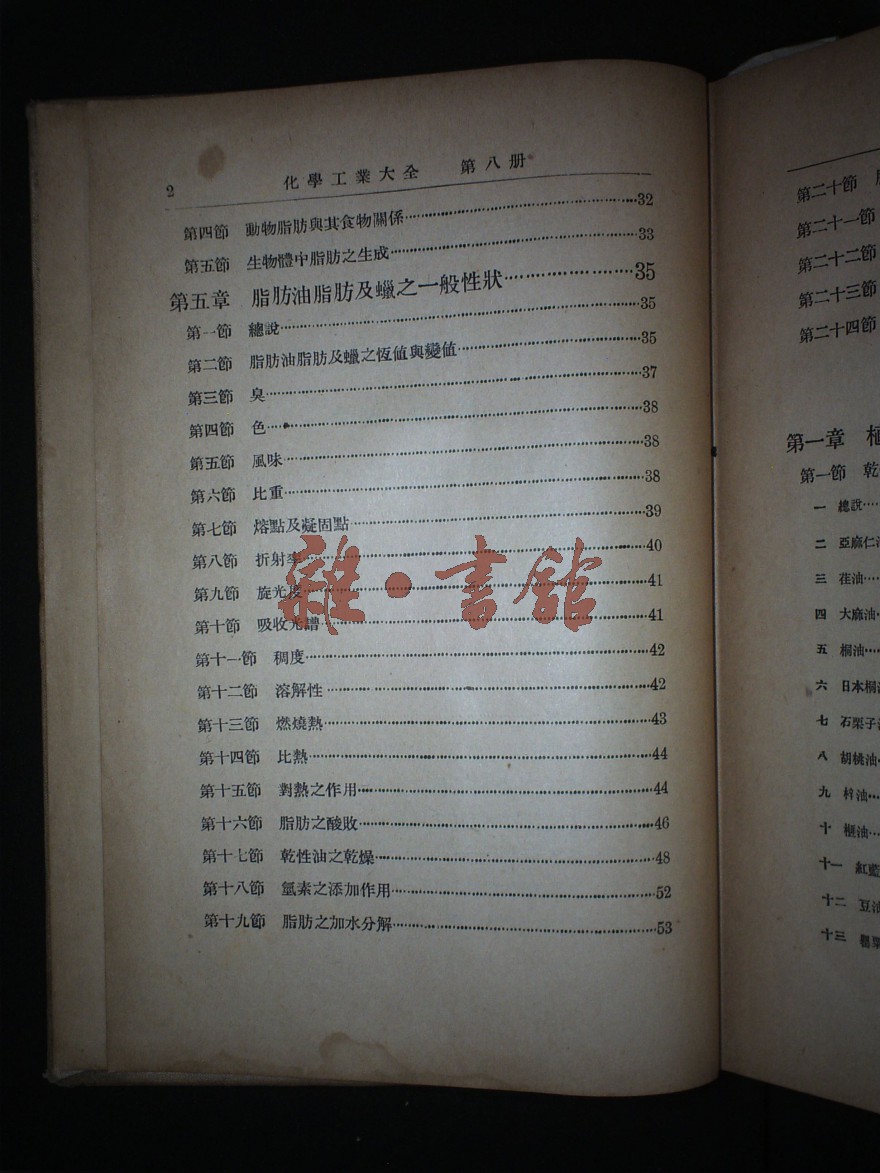 2 化學工業大全 第八册
第四節 動物脂肪與其食物關係………32
第五節 生物體中脂肪之生成………33
第五章 脂肪油脂肪及蠟之一般性狀………35
第一節 總說………35
第二節 脂肪油脂肪及蠟之恆値與變値………35
第三節 臭………37
第四節 色………38
第五節 風味………38
第六節 比重………38
第七節 熔點及凝固點………39
第八節 折射率………40
第九節 旋光度………41
第十節 吸收光譜………41
第十一節 稠度………42
第十二節 溶解性………42
第十三節 燃燒熱………43
第十四節 比熱………44
第十五節 對熱之作用………44
第十六節 脂肪之酸敗………46
第十七節 乾性油之乾燥………48
第十八節 氫素之添加作用………52
第十九節 脂肪之加水分解………53
雜·書館
第二十節
第二十一節
第二十二節
第二十三節
第二十四節
第一章
第一節 乾
一 總說……
二 亞麻仁
三 荏油……
四 大麻油…
五 桐油……
六 日本桐
七 石栗子
八 胡桃油…
九 梓油……
十 榧油……
十一 紅藍
十二 豆油
十三 罌粟